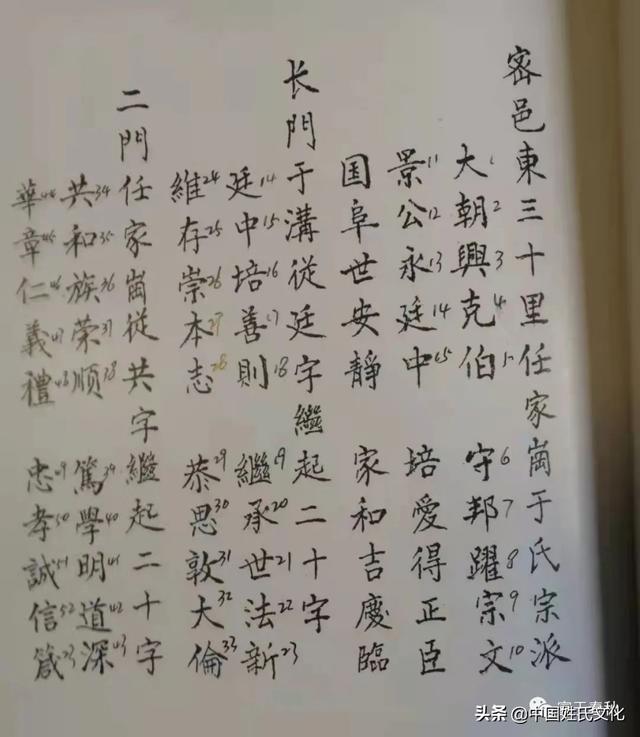 密邑東三十里任家崗于氏宗派
大1朝2興3克4伯5 守6邦7躍8宗9文10
景11公12永13廷14中15 培愛得正臣
国阜世安靜 家和吉慶臨
长門于溝從廷字繼起二十字
廷14中15培16善17則18 繼19承20世21法22新23
維24存25崇26本27志28 恭29思30敦31大32倫33
二門任家崗從共字繼起二十字
共34和35族36荣37順38 篤39學40明41道42深43
華44章45仁46義47禮48 忠49孝50誠51信52箴53
富于春秋
头条 @中国姓氏文化